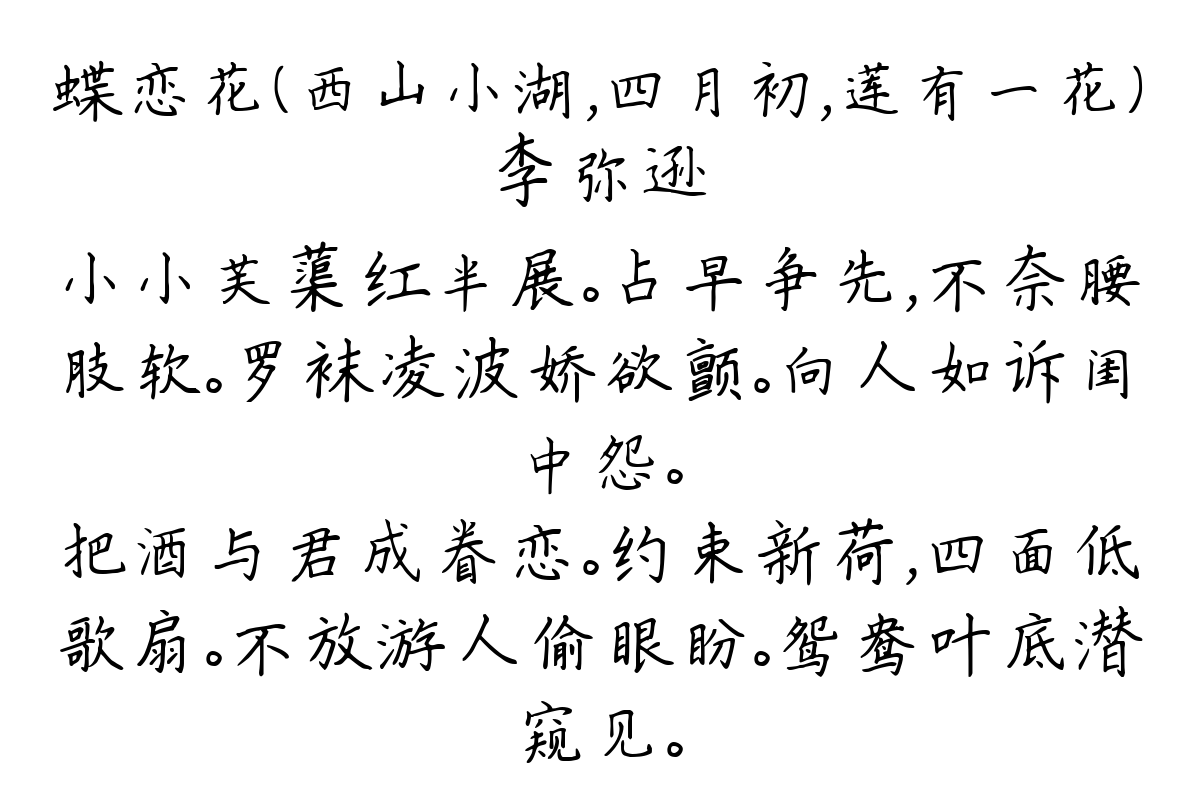 蝶恋花(西山小湖,四月初,莲有一花)
李弥逊
小小芙蕖红半展。占早争先,不奈腰
肢软。罗袜凌波娇欲颤。向人如诉闺
中怨。
把酒与君成眷恋。约束新荷,四面低
歌扇。不放游人偷眼盼。鸳鸯叶底潜
窥见。